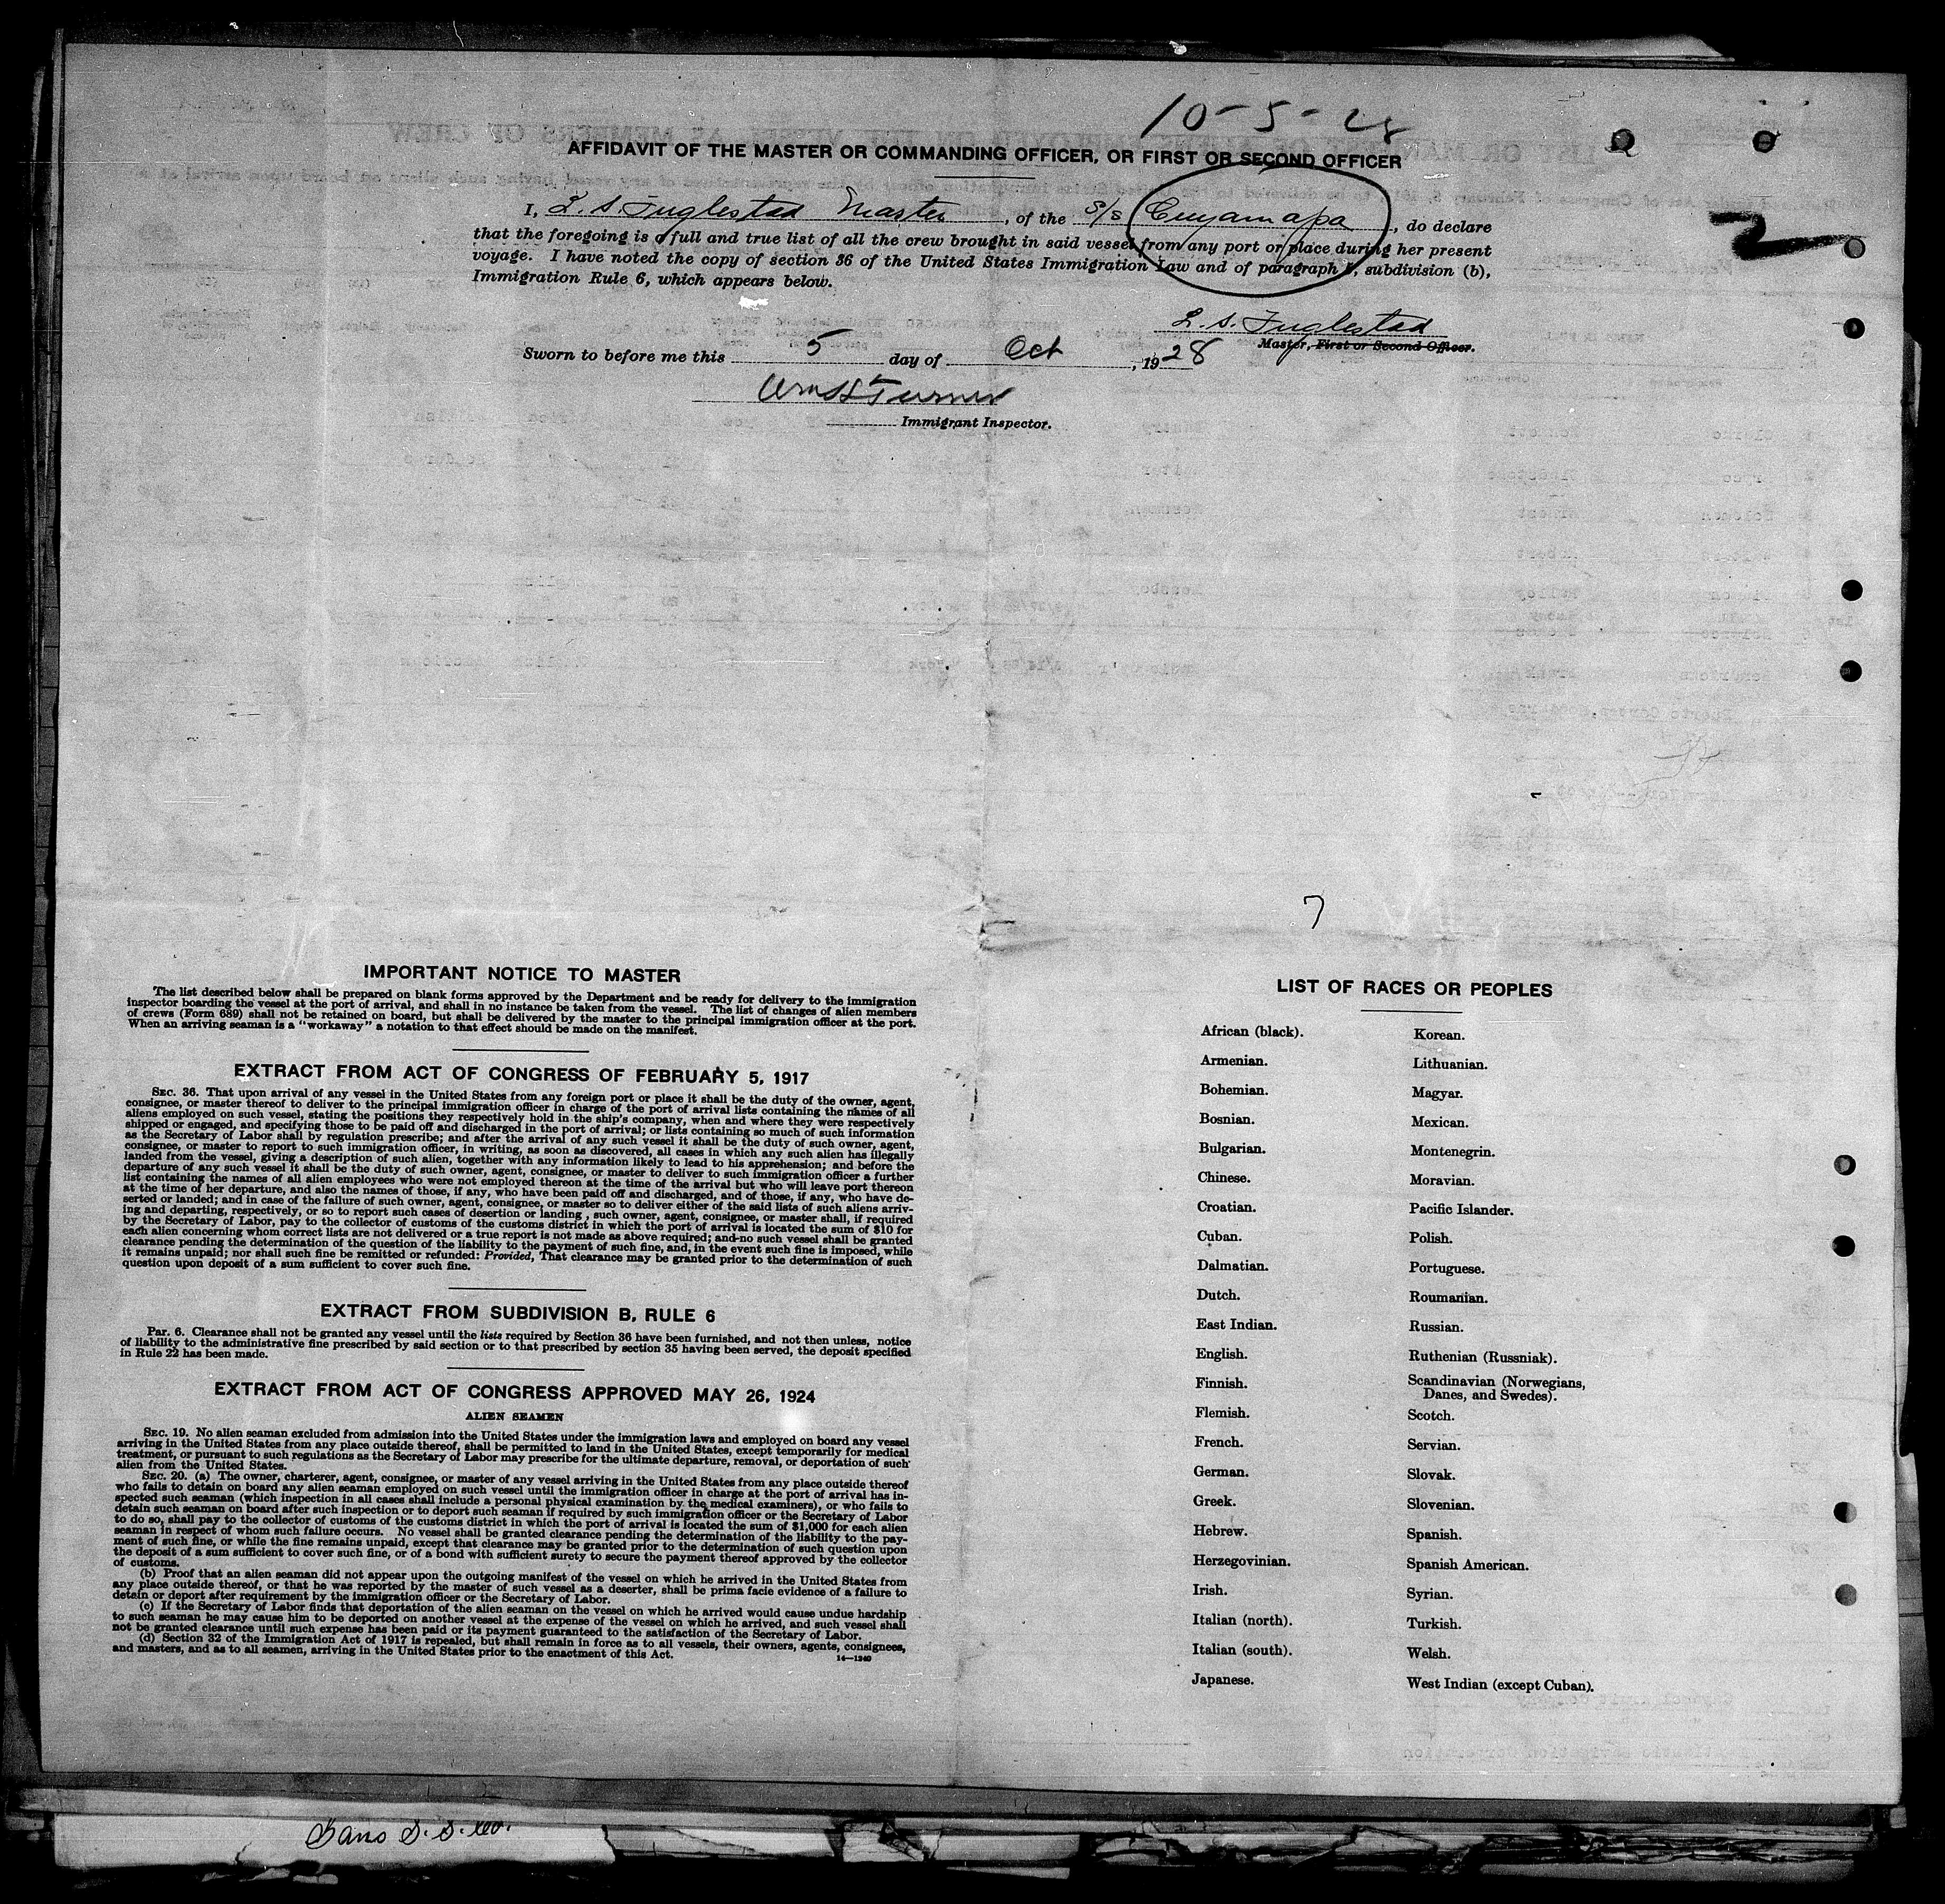 10-5-28
AFFIDAVIT OF THE MASTER OR COMMANDING OFFICER, OR FIRST OR SECOND OFFICER
2
I, L. S. Inglestad Master, of the S/s Cuyamapa, do declare
that the foregoing is a full and true list of all the crew brought in said vessel from any port or place during her present
voyage. I have noted the copy of section 36 of the United States Immigration Law and of paragraph 6, subdivision (b),
Immigration Rule 6, which appears below.
L. S. Inglestad
Master, First or Second Officer.
Sworn to before me this 5 day of Oct, 1928
Turner
Immigrant Inspector.
7
IMPORTANT NOTICE TO MASTER
The list described below shall be prepared on blank forms approved by the Department and be ready for delivery to the immigration
inspector boarding the vessel at the port of arrival, and shall in no instance be taken from the vessel. The list of changes of alien members
of crews (Form 689) shall not be retained on board, but shall be delivered by the master to the principal immigration officer at the port.
When an arriving seaman is a "workaway" a notation to that effect should be made on the manifest.
EXTRACT FROM ACT OF CONGRESS OF FEBRUARY 5, 1917
SEC. 36. That upon arrival of any vessel in the United States from any foreign port or place it shall be the duty of the owner, agent,
consignee, or master thereof to deliver to the principal immigration officer in charge of the port of arrival lists containing the names of all
aliens employed on such vessel, stating the positions they respectively hold in the ship's company, when and where they were respectively
shipped or engaged, and specifying those to be paid off and discharged in the port of arrival; or lists containing so much of such information
as the Secretary of Labor shall by regulation prescribe; and after the arrival of any such vessel it shall be the duty of such owner, agent,
consignee, or master to report to such immigration officer, in writing, as soon as discovered, all cases in which any such alien has illegally
landed from the vessel, giving a description of such alien, together with any information likely to lead to his apprehension; and before the
departure of any such vessel it shall be the duty of such owner, agent, consignee, or master to deliver to such immigration officer a further
list containing the names of all alien employees who were not employed thereon at the time of the arrival but who will leave port thereon
at the time of her departure, and also the names of those, if any, who have been paid off and discharged, and of those, if any, who have de-
serted or landed; and in case of the failure of such owner, agent, consignee, or master so to deliver either of the said lists of such aliens arriv-
ing and departing, respectively, or so to report such cases of desertion or landing, such owner, agent, consignee, or master shall, if required
by the Secretary of Labor, pay to the collector of customs of the customs district in which the port of arrival is located the sum of $10 for
each alien concerning whom correct lists are not delivered or a true report is not made as above required; and no such vessel shall be granted
clearance pending the determination of the question of the liability to the payment of such fine, and, in the event such fine is imposed, while
it remains unpaid; nor shall such fine be remitted or refunded: Provided, That clearance may be granted prior to the determination of such
question upon deposit of a sum sufficient to cover such fine.
EXTRACT FROM SUBDIVISION B, RULE 6
Par. 6. Clearance shall not be granted any vessel until the lists required by Section 36 have been furnished, and not then unless, notice
of liability to the administrative fine prescribed by said section or to that prescribed by section 35 having been served, the deposit specified
in Rule 22 has been made.
EXTRACT FROM ACT OF CONGRESS APPROVED MAY 26, 1924
ALIEN SEAMEN
SEC. 19. No alien seaman excluded from admission into the United States under the immigration laws and employed on board any vessel
arriving in the United States from any place outside thereof, shall be permitted to land in the United States, except temporarily for medical
treatment, or pursuant to such regulations as the Secretary of Labor may prescribe for the ultimate departure, removal, or deportation of such
alien from the United States.
SEC. 20. (a) The owner, charterer, agent, consignee, or master of any vessel arriving in the United States from any place outside thereof
who fails to detain on board any alien seaman employed on such vessel until the immigration officer in charge at the port of arrival has in-
spected such seaman (which inspection in all cases shall include a personal physical examination by the medical examiners), or who fails to
detain such seaman on board after such inspection or to deport such seaman if required by such immigration officer or the Secretary of Labor
to do so, shall pay to the collector of customs of the customs district in which the port of arrival is located the sum of $1,000 for each alien
seaman in respect of whom such failure occurs. No vessel shall be granted clearance pending the determination of the liability to the pay-
ment of such fine, or while the fine remains unpaid, except that clearance may be granted prior to the determination of such question upon
the deposit of a sum sufficient to cover such fine, or of a bond with sufficient surety to secure the payment thereof approved by the collector
of customs.
(b) Proof that an alien seaman did not appear upon the outgoing manifest of the vessel on which he arrived in the United States from
any place outside thereof, or that he was reported by the master of such vessel as a deserter, shall be prima facie evidence of a failure to
detain or deport after requirement by the immigration officer or the Secretary of Labor.
(c) If the Secretary of Labor finds that deportation of the alien seaman on the vessel on which he arrived would cause undue hardship
to such seaman he may cause him to be deported on another vessel at the expense of the vessel on which he arrived, and such vessel shall
not be granted clearance until such expense has been paid or its payment guaranteed to the satisfaction of the Secretary of Labor.
(d) Section 32 of the Immigration Act of 1917 is repealed, but shall remain in force as to all vessels, their owners, agents, consignees,
and masters, and as to all seamen, arriving in the United States prior to the enactment of this Act.
14—1240
LIST OF RACES OR PEOPLES
African (black).
Armenian.
Bohemian.
Bosnian.
Bulgarian.
Chinese.
Croatian.
Cuban.
Dalmatian.
Dutch.
East Indian.
English.
Finnish.
Flemish.
French.
German.
Greek.
Hebrew.
Herzegovinian.
Irish.
Italian (north).
Italian (south).
Japanese.
Korean.
Lithuanian.
Magyar.
Mexican.
Montenegrin.
Moravian.
Pacific Islander.
Polish.
Portuguese.
Roumanian.
Russian.
Ruthenian (Russniak).
Scandinavian (Norwegians,
Danes, and Swedes).
Scotch.
Servian.
Slovak.
Slovenian.
Spanish.
Spanish American.
Syrian.
Turkish.
Welsh.
West Indian (except Cuban).
S. S. Co.